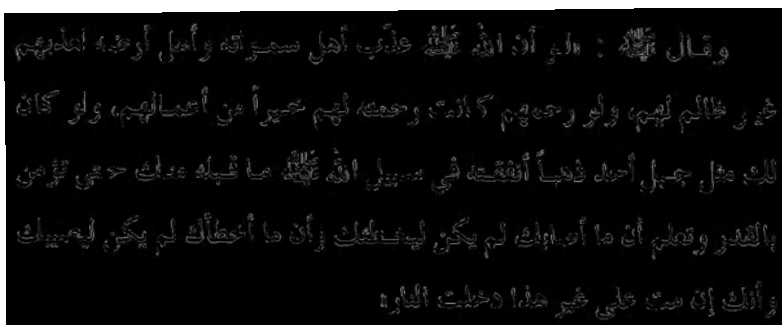 وقال ﷺ : «لو أن الله ﷻ عذّب أهل سمواته وأهل أرضه لعذبهم
غير ظالم لهم، ولو رحمهم كانت رحمته لهم خيراً من أعمالهم، ولو كان
لك مثل جبل أحد ذهباً أنفقته في سبيل الله ﷻ ما قبله منك حتى تؤمن
بالقدر وتعلم أن ما أصابك لم يكن ليخطئك وأن ما أخطأك لم يكن ليصيبك
وأنك إن مت على غير هذا دخلت النار»